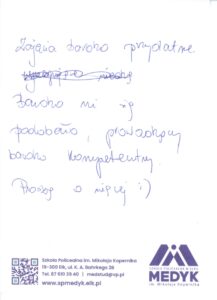 Zajęcia bardzo przydatne.
Bardzo mi się
podobało, prowadzący
bardzo kompetentny.
Proszę o więcej :)
Szkoła Policealna im. Mikołaja Kopernika
19-300 Ełk, ul. K. A.
Tel. 87 610
www.spmedyk.elk.pl
MEDYK
im. Mikołaja Kopernika